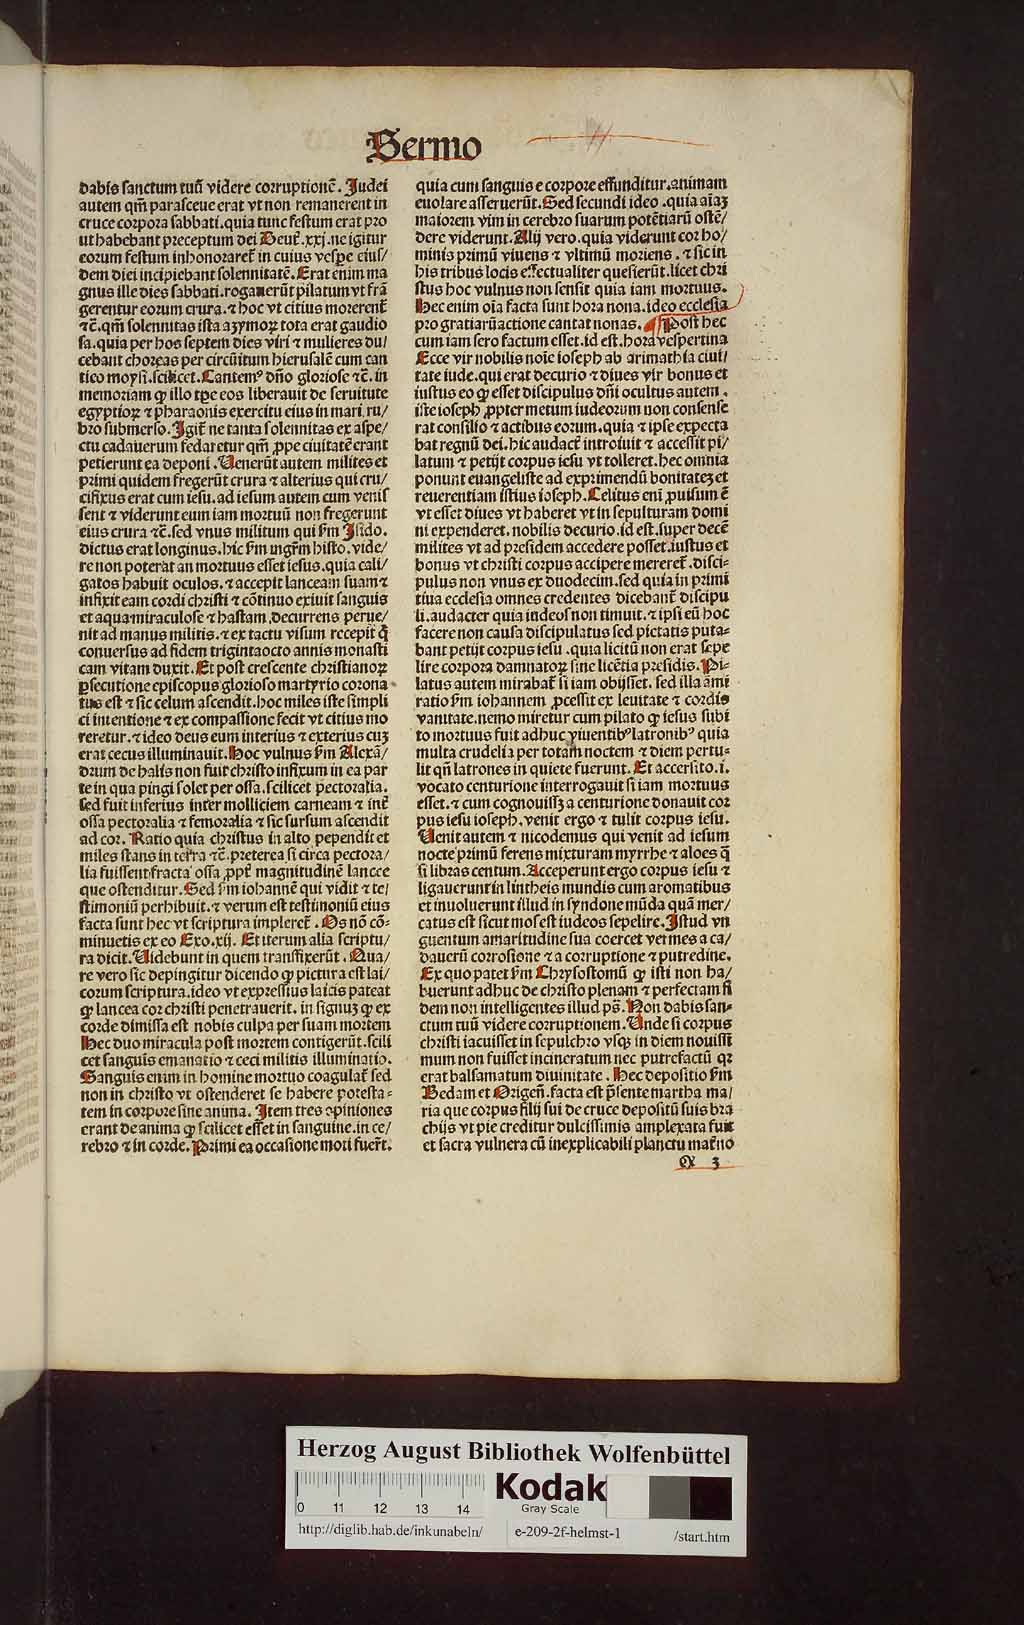 Sermo
dabis sanctum tuū videre corruptionē. Judei
autem qm̄ parasceue erat vt non remanerent in
cruce corpora sabbati. quia tunc festum erat pro
ut habebant preceptum dei Deut̄. xxj. ne igitur
eorum festum inhonoraret̄ in cuius vespe eius/
dem diei incipiebant solennitatē. Erat enim ma
gnus ille dies sabbati. rogauerūt pilatum vt frā
gerentur eorum crura. ⁊ hoc vt citius morerent̄
⁊c̄. qm̄ solennitas ista azymoꝝ tota erat gaudio
sa. quia per hos septem dies viri ⁊ mulieres du/
cebant choreas per circūitum hierusalē cum can
tico moysi. scilicet. Cantemꝰ dn̄o gloriose ⁊c̄. in
memoriam ꝙ illo tpe eos liberauit de seruitute
egyptioꝝ ⁊ pharaonis exercitu eius in mari ru/
bro submerso. Igit̄ ne tanta solennitas ex aspe/
ctu cadauerum fedaretur qm̄ ꝓpe ciuitatē erant
petierunt ea deponi. Venerūt autem milites et
primi quidem fregerūt crura ⁊ alterius qui cru/
cifixus erat cum iesu. ad iesum autem cum venis
sent ⁊ viderunt eum iam mortuū non fregerunt
eius crura ⁊c̄. sed vnus militum qui ẜm Isido.
dictus erat longinus. hic ẜm mgr̄m histo. vide/
re non poterat an mortuus esset iesus. quia cali/
gatos habuit oculos. ⁊ accepit lanceam suam ⁊
infixit eam cordi christi ⁊ cōtinuo exiuit sanguis
et aqua miraculose ⁊ hastam decurrens perue/
nit ad manus militis. ⁊ ex tactu visum recepit q̄
conuersus ad fidem trigintaocto annis monasti
cam vitam duxit. Et post crescente christianoꝝ
ꝑsecutione episcopus glorioso martyrio corona
tus est ⁊ sic celum ascendit. hoc miles iste simpli
ci intentione ⁊ ex compassione fecit vt citius mo
reretur. ⁊ ideo deus eum interius ⁊ exterius cuꝫ
erat cecus illuminauit. Hoc vulnus ẜm Alexā/
drum de halis non fuit christo infixum in ea par
te in qua pingi solet per ossa. scilicet pectoralia.
sed fuit inferius inter molliciem carneam ⁊ int̄
ossa pectoralia ⁊ femoralia ⁊ sic sursum ascendit
ad cor. Ratio quia christus in alto pependit et
miles stans in terra ⁊c̄. preterea si circa pectora/
lia fuissent fracta ossa ꝓpt̄ magnitudinē lancee
que ostenditur. Sed ẜm iohannē qui vidit ⁊ te/
stimoniū perhibuit. ⁊ verum est testimoniū eius
facta sunt hec vt scriptura impleret̄. Os nō cō-
minuetis ex eo Exo. xij. Et iterum alia scriptu/
ra dicit. Videbunt in quem transfixerūt. Qua/
re vero sic depingitur dicendo ꝙ pictura est lai/
corum scriptura. ideo vt expressius laicis pateat
ꝙ lancea cor christi penetrauerit. in signuꝫ ꝙ ex
corde dimissa est nobis culpa per suam mortem
Hec duo miracula post mortem contigerūt. scili
cet sanguis emanatio ⁊ ceci militis illuminatio.
Sanguis enim in homine mortuo coagulat̄ sed
non in christo vt ostenderet se habere potesta-
tem in corpore sine anima. Item tres opiniones
erant de anima ꝙ scilicet esset in sanguine. in ce/
rebro ⁊ in corde. Primi ea occasione moti fuer̄t.
quia cum sanguis e corpore effunditur. animam
euolare asseruerūt. Sed secundi ideo. quia aīaꝫ
maiorem vim in cerebro suarum potētiarū ostē/
dere viderunt. Alij vero. quia viderunt cor ho/
minis primū viuens ⁊ vltimū moriens. ⁊ sic in
his tribus locis effectualiter quesierūt. licet chri
stus hoc vulnus non sensit quia iam mortuus.
Hec enim oīa facta sunt hora nona. ideo ecclesia
pro gratiarū actione cantat nonas. ¶ Post hec
cum iam sero factum esset. id est. hora vespertina
Ecce vir nobilis noīe ioseph ab arimathia ciui/
tate iude. qui erat decurio ⁊ diues vir bonus et
iustus eo ꝙ esset discipulus dn̄i ocultus autem.
iste ioseph ꝓpter metum iudeorum non consense
rat consilio ⁊ actibus eorum. quia ⁊ ipse expecta
bat regnū dei. hic audact̄ introiuit ⁊ accessit pi/
latum ⁊ petijt corpus iesu vt tolleret. hec omnia
ponunt euangeliste ad exprimendū bonitateꝫ et
reuerentiam istius ioseph. Celitus enī ꝓuisum ē
vt esset diues vt haberet vt in sepulturam domi
ni expenderet. nobilis decurio. id est. super decē
milites vt ad presidem accedere posset. iustus et
bonus vt christi corpus accipere mereret̄. disci-
pulus non vnus ex duodecim. sed quia in primi
tiua ecclesia omnes credentes dicebant̄ discipu
li. audacter quia iudeos non timuit. ⁊ ipsi eū hoc
facere non causa discipulatus sed pietatis puta-
bant petijt corpus iesu. quia licitū non erat sepe
lire corpora damnatoꝝ sine licētia presidis. Pi-
latus autem mirabat̄ si iam obijsset. sed illa āmi
ratio ẜm iohannem ꝓcessit ex leuitate ⁊ cordis
vanitate. nemo miretur cum pilato ꝙ iesus subi
to mortuus fuit adhuc viuentibꝰ latronibꝰ quia
multa crudelia per totam noctem ⁊ diem pertu-
lit qn̄ latrones in quiete fuerunt. Et accersito. i.
vocato centurione interrogauit si iam mortuus
esset. ⁊ cum cognouissꝫ a centurione donauit cor
pus iesu ioseph. venit ergo ⁊ tulit corpus iesu.
Venit autem ⁊ nicodemus qui venit ad iesum
nocte primū ferens mixturam myrrhe ⁊ aloes q̄
si libras centum. Acceperunt ergo corpus iesu ⁊
ligauerunt in lintheis mundis cum aromatibus
et inuoluerunt illud in syndone mūda quā mer/
catus est sicut mos est iudeos sepelire. Istud vn
guentum amaritudine sua coercet vermes a ca/
dauerū corrosione ⁊ a corruptione ⁊ putredine.
Ex quo patet ẜm Chrysostomū ꝙ isti non ha/
buerunt adhuc de christo plenam ⁊ perfectam fi
dem non intelligentes illud ps̄. Non dabis san-
ctum tuū videre corruptionem. Unde si corpus
christi iacuisset in sepulchro vsqꝫ in diem nouissi
mum non fuisset incineratum nec putrefactū qꝛ
erat balsamatum diuinitate. Hec depositio ẜm
Bedam et Origen̄. facta est p̄sente martha ma/
ria que corpus filij sui de cruce depositū suis bra
chijs vt pie creditur dulcissimis amplexata fuit
et sacra vulnera cū inexplicabili planctu mat̄no
3
Herzog August Bibliothek Wolfenbüttel
0 11 12 13 14
Kodak
Gray Scale
http://diglib.hab.de/inkunabeln/ e-209-2f-helmst-1 /start.htm